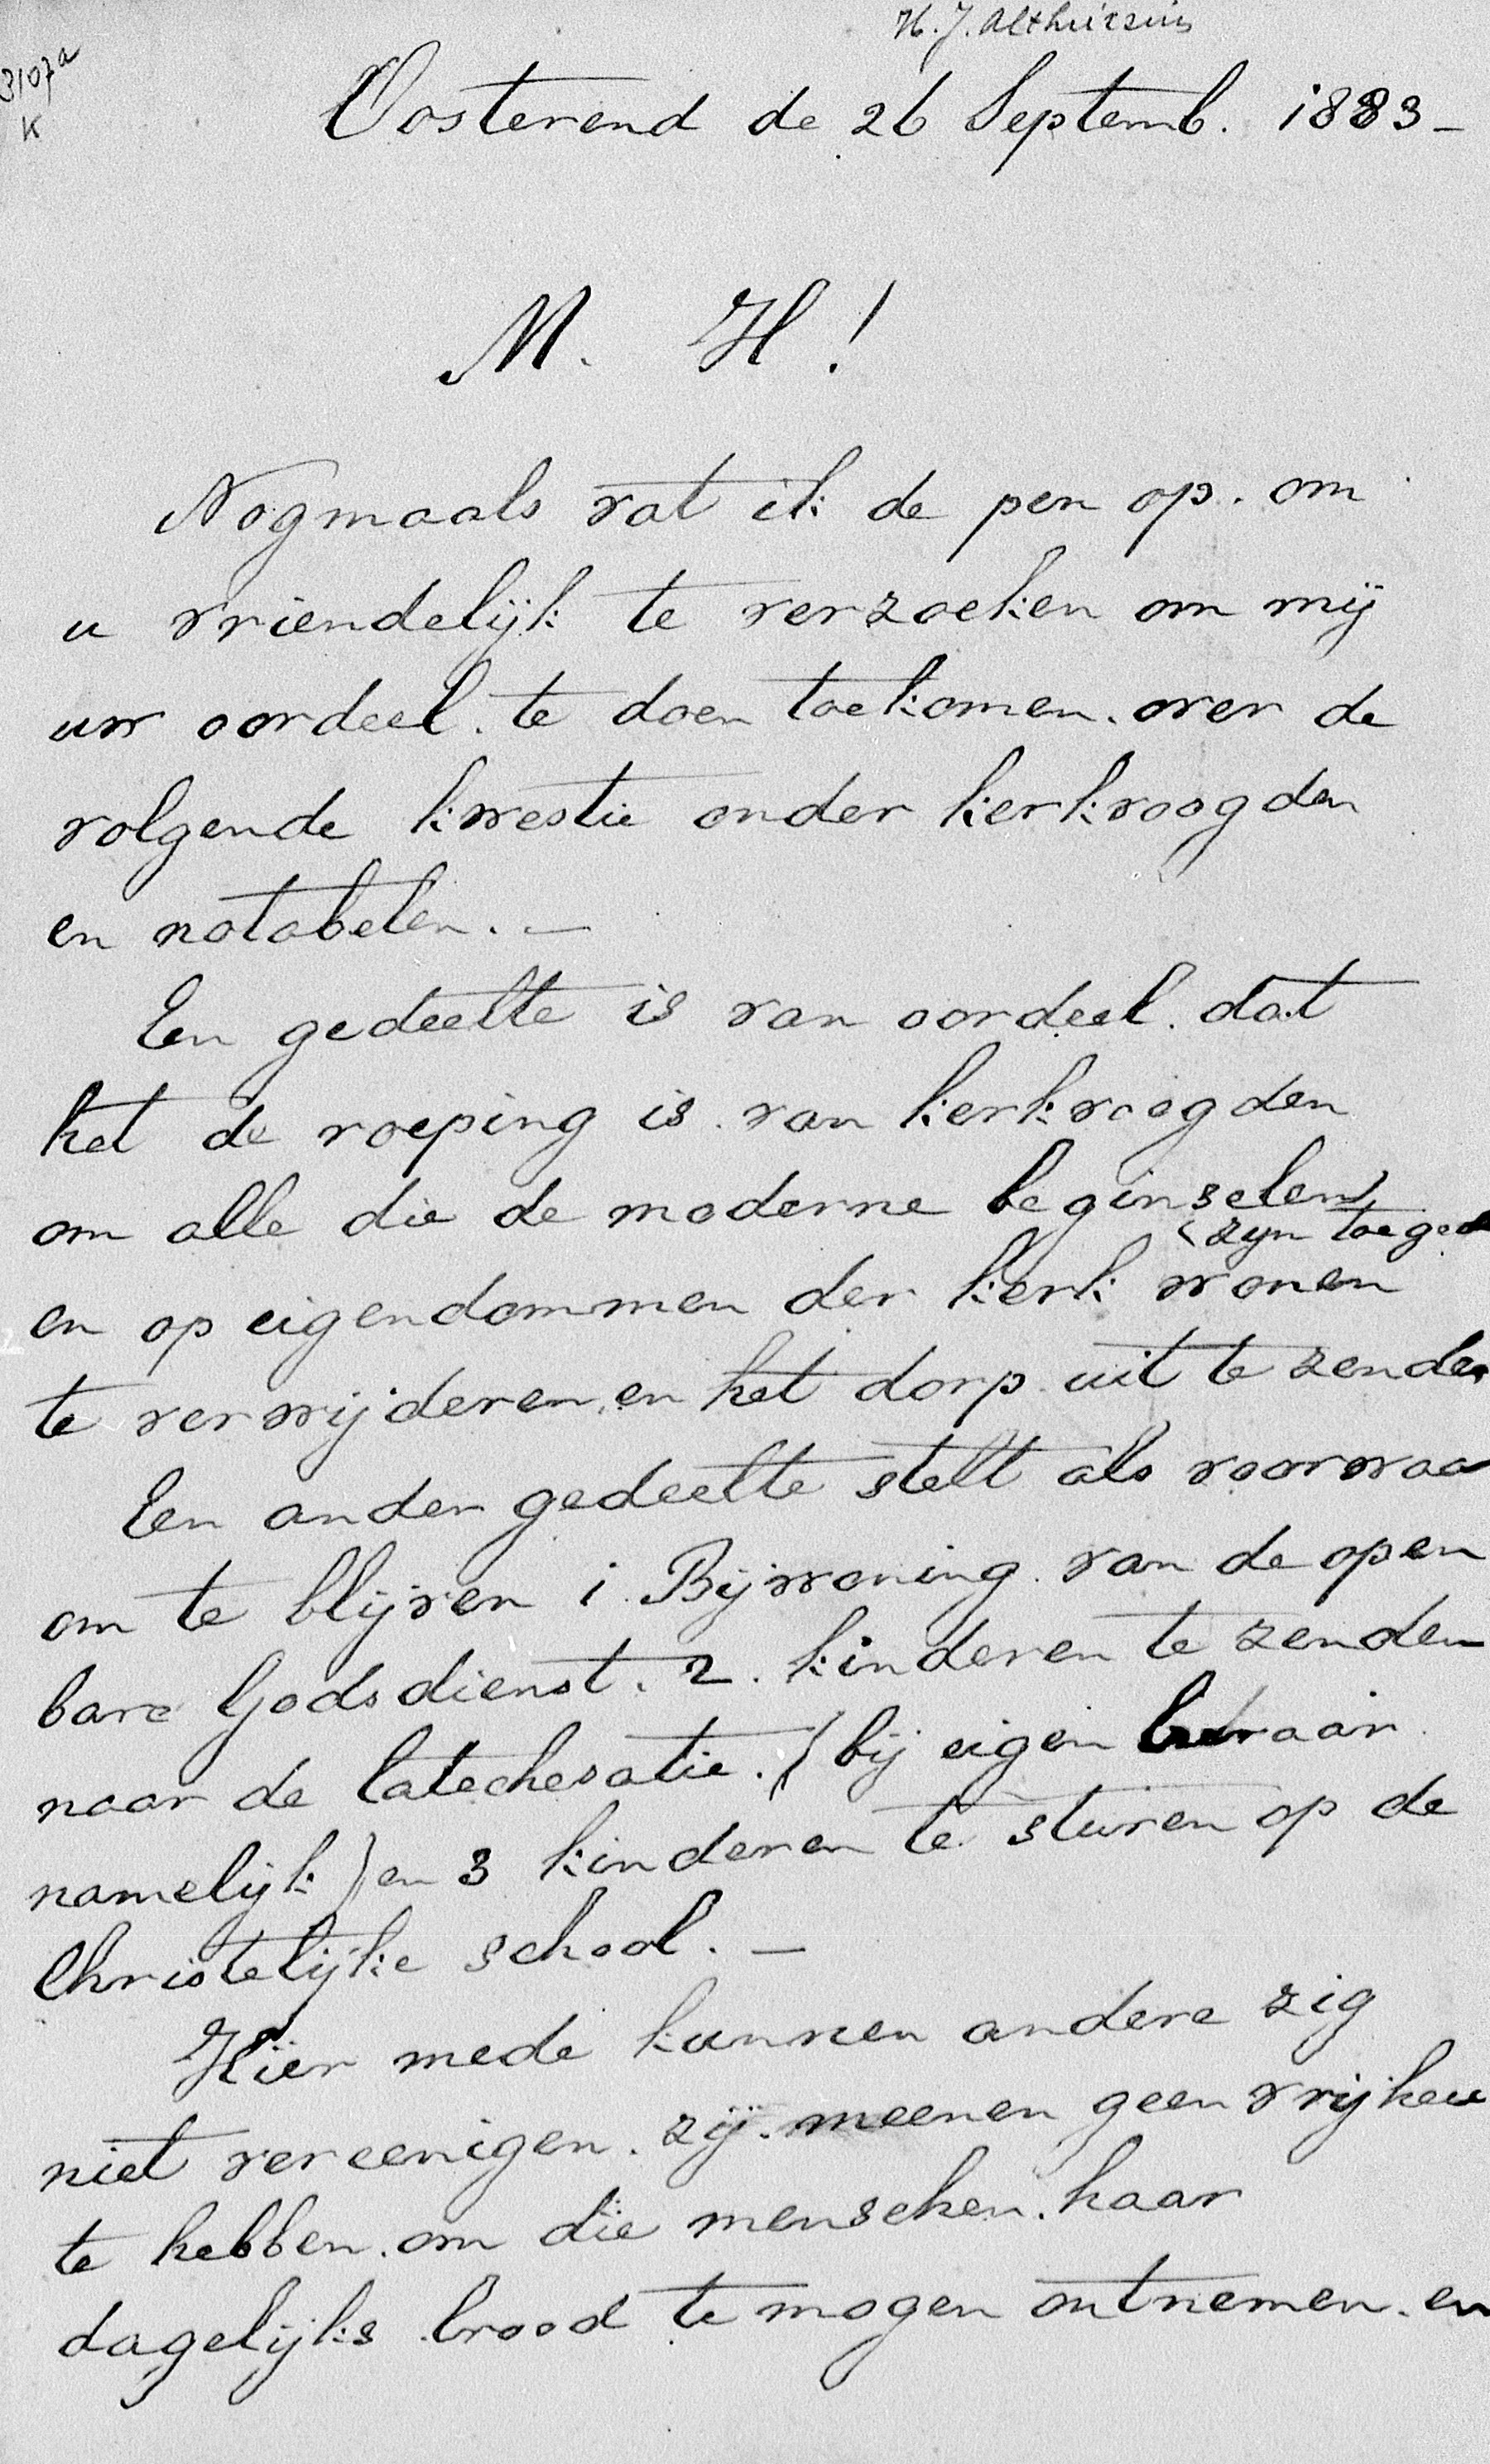 H. J. Althuizius
3107a
K
Oosterend de 26 Septemb. 1883 -
M. H!
Nogmaals vat ik de pen op. om
u vriendelijk te verzoeken om mij
uw oordeel. te doen toekomen. over de
volgende kwestie onder kerkvoogden
en notabelen. -
Een gedeelte is van oordeel. dat
het de roeping is van kerkvoogden
om alle die de moderne beginselen
(zyn toegeda
en op eigendommen der kerk wonen
te verwijderen, en het dorp uit te zenden
Een ander gedeelte stelt als voorwaa
om te blijven 1. Bijwoning van de open
bare Godsdienst. 2. kinderen te zenden
naar de Catechesatie. (bij eigen leeraar
namelijk) en 3 kinderen te sturen op de
Christelijke school. -
Hier mede kunnen andere zig
niet vereenigen. zij. meenen geen vrijhei
te hebben. om die menschen. haar
dagelijks brood te mogen ontnemen. en